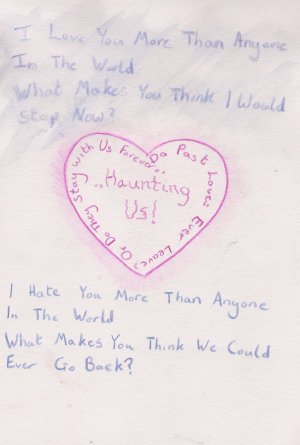 I Love You More Than Anyone
In The World
What Makes You Think I Would
Stop Now?
Do Past Loves Ever Leave? Or Do They Stay With Us Forever...
..Haunting
Us?
I Hate You More Than Anyone
In The World
What Makes You Think We Could
Ever Go Back?